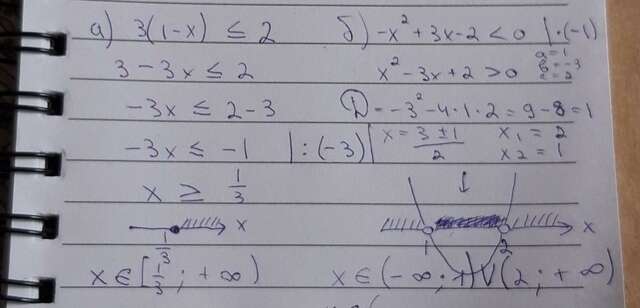 а) 3(1-x) ≤ 2
3 - 3x ≤ 2
-3x ≤ 2-3
-3x ≤ -1 | : (-3)
x ≥ 1/3
1/3 x
x ∈ [1/3; +∞)
б) -x² + 3x - 2 < 0 | ·(-1)
x² - 3x + 2 > 0
a = 1
b = -3
c = 2
D = -3² - 4·1·2 = 9 - 8 = 1
x = (3 ± 1)/2 x₁ = 2
x₂ = 1
1 2 x
x ∈ (-∞; 1) V (2; +∞)